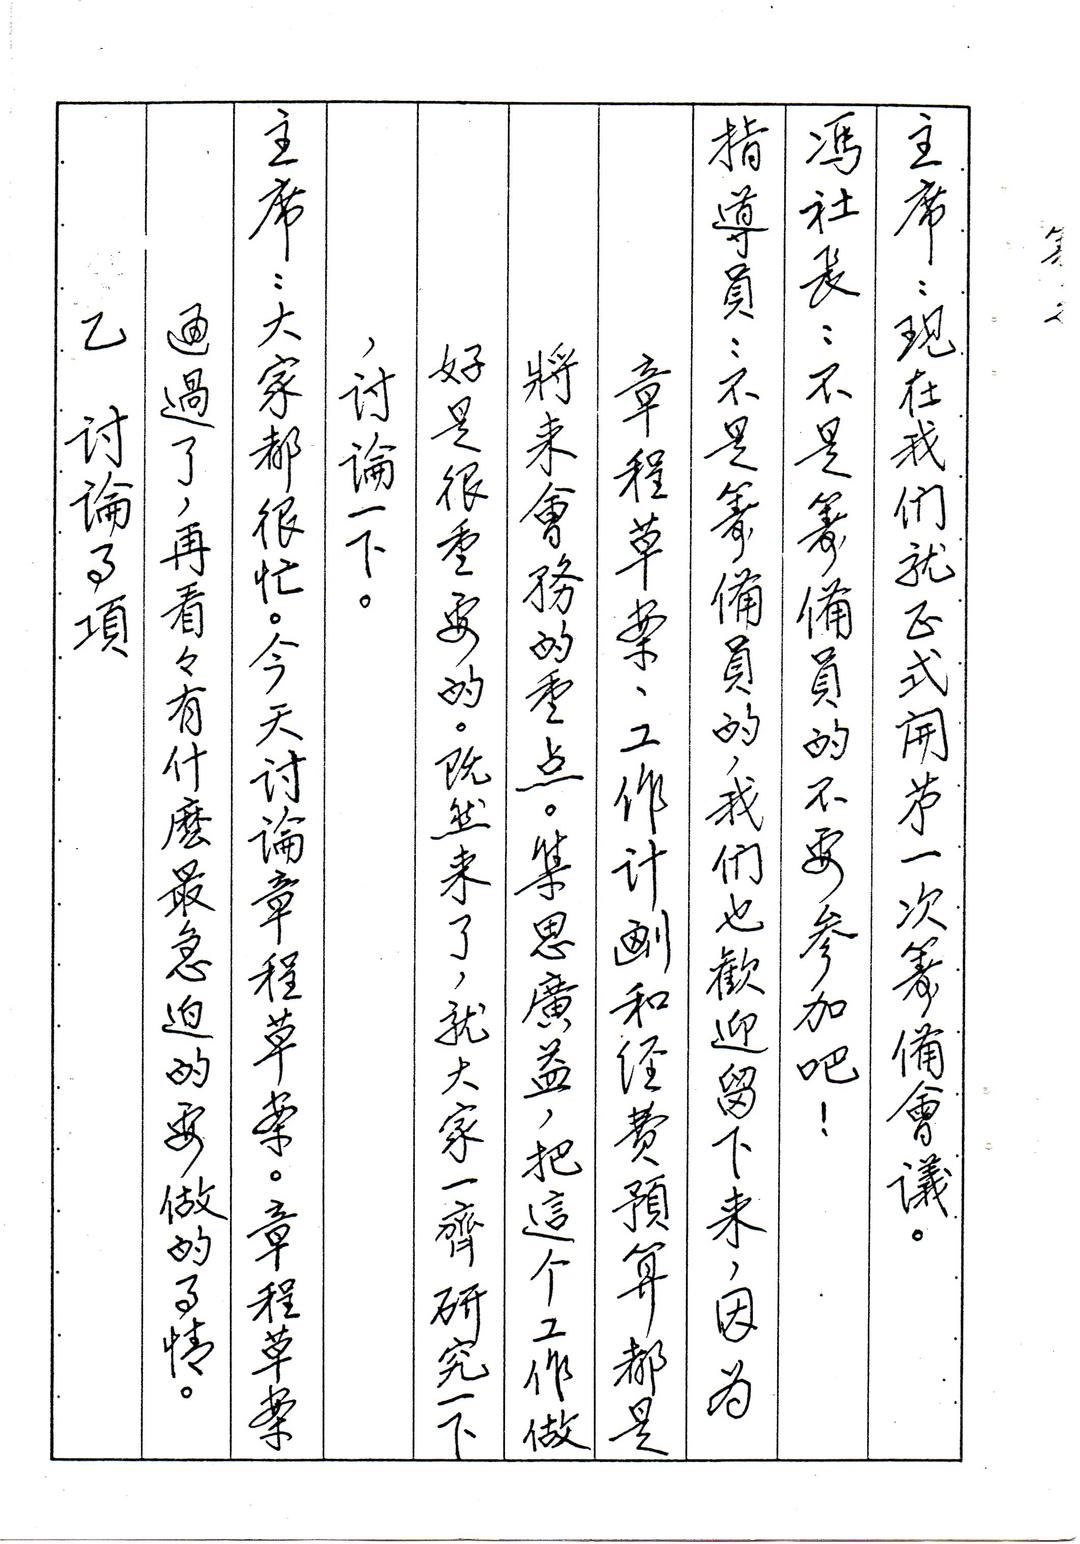 主席：現在我们就正式開第一次筹備會議。
馮社長：不是筹備員的不要参加吧！
指導員：不是筹備員的，我们也歡迎留下来，因为
章程草案、工作計劃和経費預算都是
將来會務的重点。集思廣益，把這个工作做
好是很重要的。既然来了，就大家一齊研究一下
，討論一下。
主席：大家都很忙。今天討論章程草案。章程草案
通過了，再看々有什麼最急迫的要做的事情。
乙　討論事項